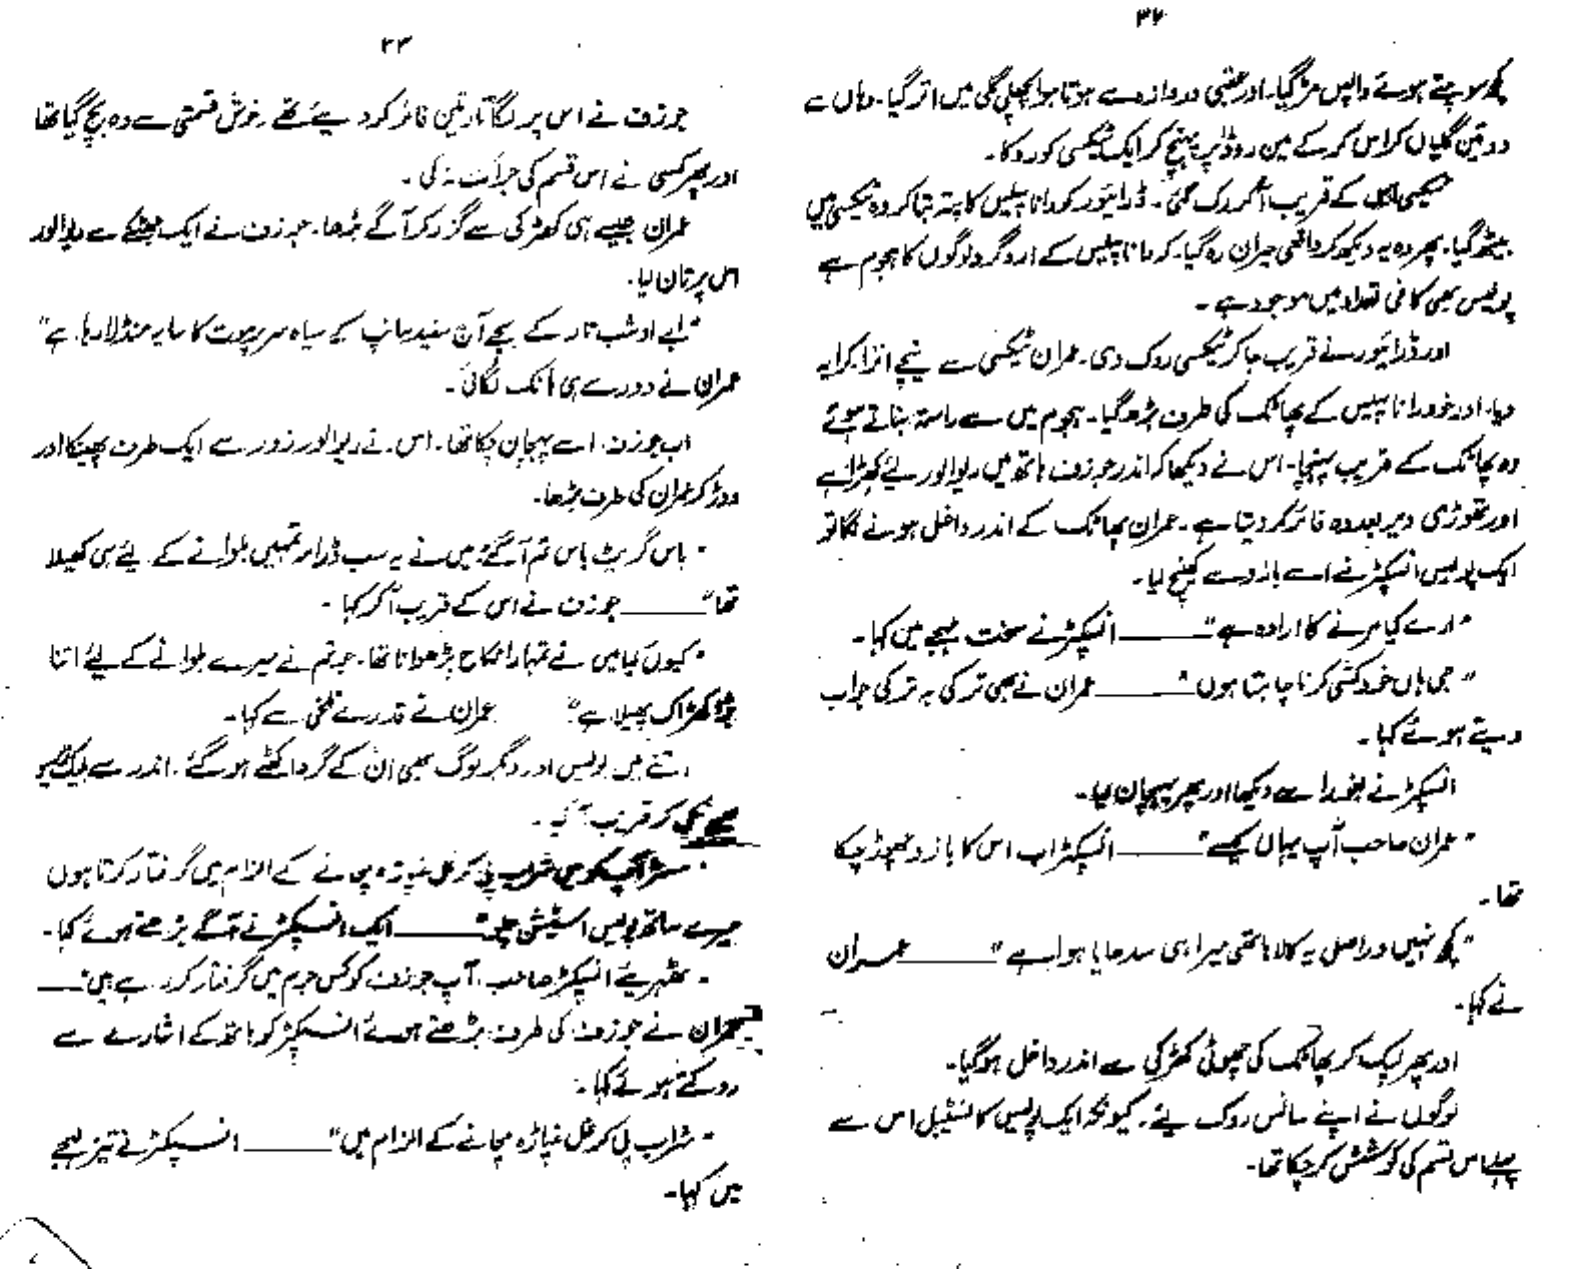 ۳۲
کچھ سوچتے ہوئے واپس مڑ گیا۔ اور عقبی دروازہ سے ہوتا ہوا پچھلی گلی میں اتر گیا۔ وہاں سے
دو تین گلیاں کراس کر کے مین روڈ پر پہنچ کر ایک ٹیکسی کو روکا۔
ٹیکسی اس کے قریب آ کر رک گئی۔ ڈرائیور کو رانا پیلس کا پتہ بتا کر وہ ٹیکسی میں
بیٹھ گیا۔ پھر وہ یہ دیکھ کر واقعی حیران رہ گیا۔ کہ رانا پیلس کے ارد گرد لوگوں کا ہجوم ہے
پولیس بھی کافی تعداد میں موجود ہے۔
اور ڈرائیور نے قریب جا کر ٹیکسی روک دی۔ عمران ٹیکسی سے نیچے اترا کرایہ
دیا۔ اور خود رانا پیلس کے پھاٹک کی طرف بڑھ گیا۔ ہجوم میں سے راستہ بناتے ہوئے
وہ پھاٹک کے قریب پہنچا۔ اس نے دیکھا کہ اندر جوزف ہاتھ میں ریوالور لئے کھڑا ہے
اور تھوڑی دیر بعد وہ فائر کر دیتا ہے۔ عمران پھاٹک کے اندر داخل ہونے لگا تو
ایک پولیس انسپکٹر نے اسے بازو سے کھینچ لیا۔
"ارے کیا مرنے کا ارادہ ہے" ــــــ انسپکٹر نے سخت لہجے میں کہا۔
"جی ہاں خود کشی کرنا چاہتا ہوں" ــــــ عمران نے بھی ترکی بہ ترکی جواب
دیتے ہوئے کہا۔
انسپکٹر نے بغور اسے دیکھا اور پھر پہچان لیا۔
"عمران صاحب آپ یہاں کیسے" ــــــ انسپکٹر اب اس کا بازو چھوڑ چکا
تھا۔
"کچھ نہیں دراصل یہ کالا ہاتھی میرا ہی سدھایا ہوا ہے" ــــــ عمران
نے کہا۔
اور پھر لپک کر پھاٹک کی چھوٹی کھڑکی سے اندر داخل ہو گیا۔
لوگوں نے اپنے سانس روک لئے۔ کیونکہ ایک پولیس کانسٹیبل اس سے
پہلے اس قسم کی کوشش کر چکا تھا۔
۳۳
جوزف نے اس پر لگاتار تین فائر کر دیئے تھے۔ خوش قسمتی سے وہ بچ گیا تھا
اور پھر کسی نے اس قسم کی جرأت نہ کی۔
عمران جیسے ہی کھڑکی سے گزر کر آگے بڑھا۔ جوزف نے ایک جھٹکے سے ریوالور
اس پر تان لیا۔
"ابے او شب تار کے بچے آج سفید سانپ کے سیاہ سر پر موت کا سایہ منڈلا رہا ہے"
عمران نے دور سے ہی ہانک لگائی۔
اب جوزف اسے پہچان چکا تھا۔ اس نے ریوالور زور سے ایک طرف پھینکا اور
دوڑ کر عمران کی طرف بڑھا۔
"باس گریٹ باس تم آ گئے؛ میں نے یہ سب ڈرامہ تمہیں بلوانے کے لئے ہی کھیلا
تھا" ــــــ جوزف نے اس کے قریب آ کر کہا۔
"کیوں کیا میں نے تمہارا نکاح پڑھوانا تھا۔ جو تم نے میرے بلوانے کے لئے اتنا
بڑا کھڑاک پھیلا ہے" عمران نے قدرے تلخی سے کہا۔
اتنے میں پولیس اور دیگر لوگ بھی ان کے گرد اکٹھے ہو گئے۔ اندر سے بلیک زیرو
بھی نکل کر قریب آ گیا۔
"مسٹر آپ کو میں شراب پی کر غل غپاڑہ مچانے کے الزام میں گرفتار کرتا ہوں
میرے ساتھ پولیس اسٹیشن چلو" ــــــ ایک انسپکٹر نے آگے بڑھتے ہوئے کہا۔
"ٹھہریئے انسپکٹر صاحب۔ آپ جوزف کو کس جرم میں گرفتار کر رہے ہیں" ــــــ
عمران نے جوزف کی طرف بڑھتے ہوئے انسپکٹر کو ہاتھ کے اشارے سے
روکتے ہوئے کہا۔
"شراب پی کر غل غپاڑہ مچانے کے الزام میں" ــــــ انسپکٹر نے تیز لہجے
میں کہا۔